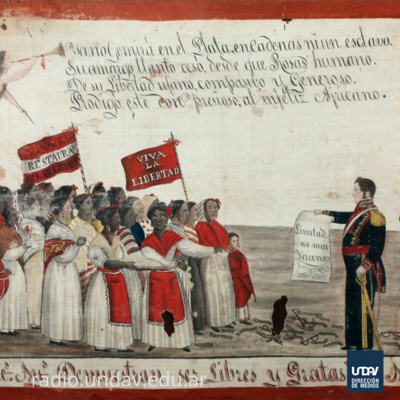 Ya no Gemirá en el Plata en cadenas ni un esclavo.
Su amargo llanto cesó, desde que Rosas humano.
De su Libertad ufano, compasivo y Generoso.
Prodigó este don precioso, al infeliz Africano.
RESTAURA
VIVA
LA
LIBERTAD
Libertad
no mas
Tiranos
Demuestran ser Libres y Gratas A
radio.undav.edu.ar
UNDAV
DIRECCIÓN
DE MEDIOS